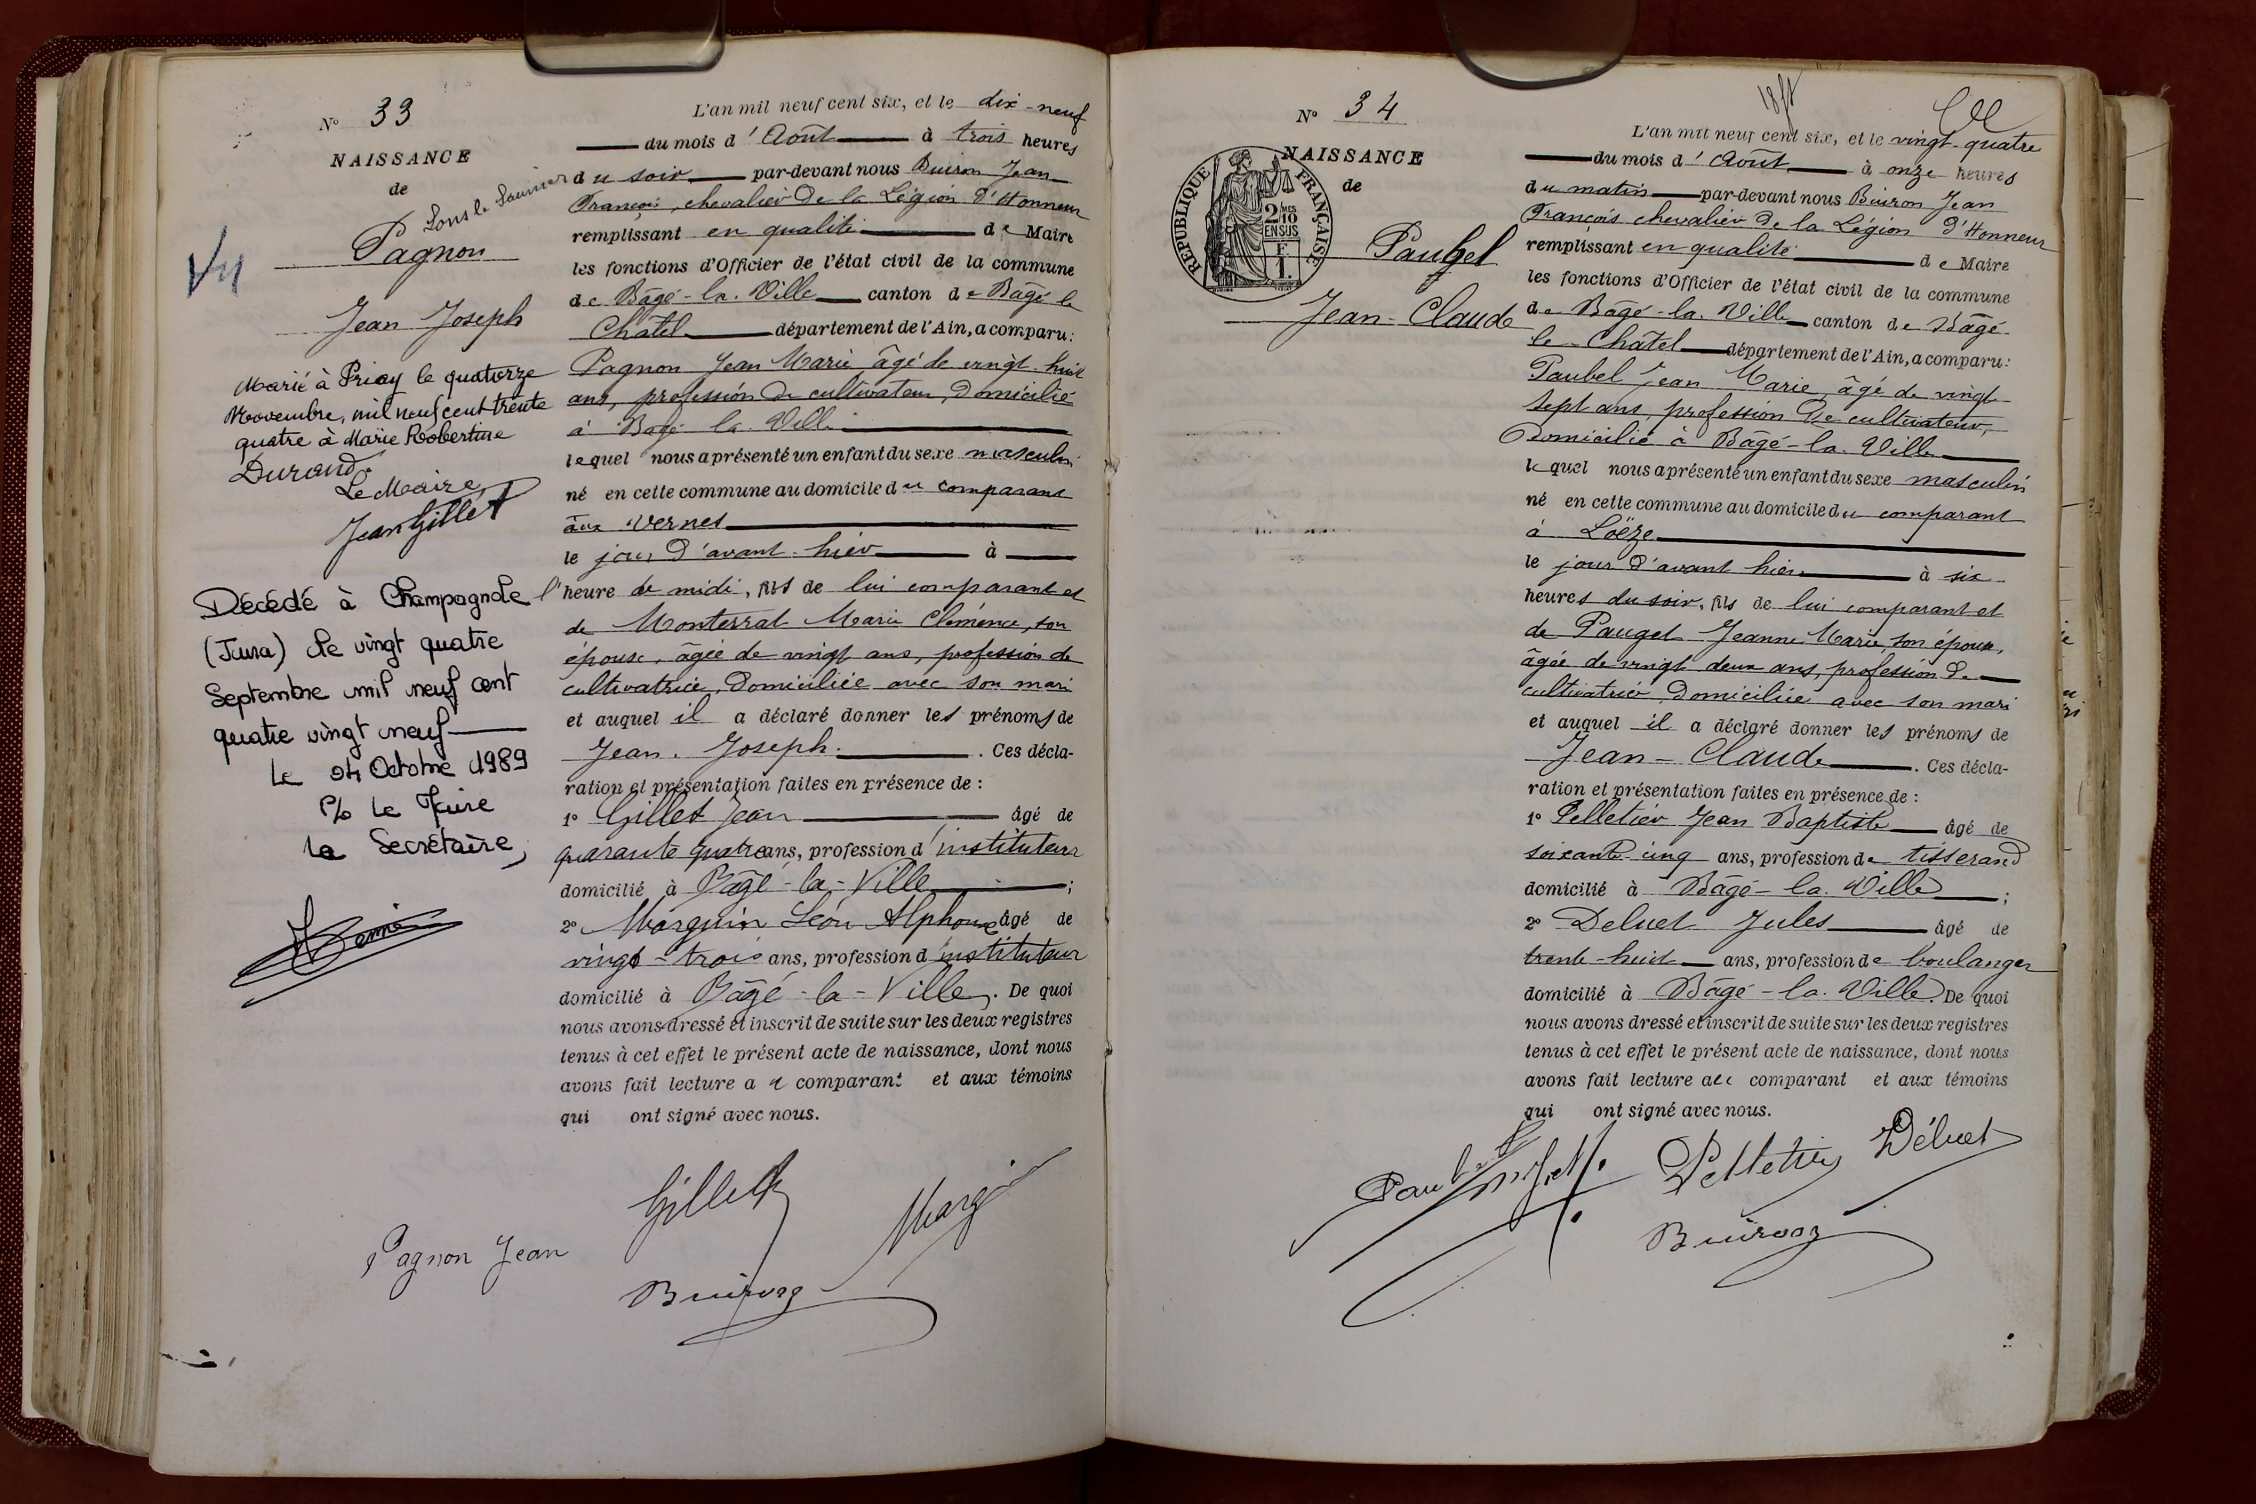 N° 33
NAISSANCE
de
Lons le Saunier
Pagnon
Jean Joseph
Vu
Marié à Priay le quatorze
Novembre, mil neuf cent trente
quatre à Marie Robertine
Durand.
Le Maire
Jean Gillet
Décédé à Champagnole
(Jura) le vingt quatre
Septembre mil neuf cent
quatre vingt neuf
Le 04 Octobre 1989
P/o Le Maire
la Secrétaire,
L'an mil neuf cent six, et le dix-neuf
du mois d'Août à trois heures
du soir par-devant nous Buiron Jean
François, chevalier de la Légion d'Honneur
remplissant en qualité de Maire
les fonctions d'Officier de l'état civil de la commune
de Bâgé-la-Ville canton de Bâgé le
Châtel département de l'Ain, a comparu:
Pagnon Jean Marie âgé de vingt-huit
ans, profession de cultivateur, domicilié
à Bâgé-la-Ville
lequel nous a présenté un enfant du sexe masculin
né en cette commune au domicile du comparant
aux Vernes
le jour d'avant-hier à
l'heure de midi, fils de lui comparant et
de Monterrat Marie Clémence, son
épouse, âgée de vingt ans, profession de
cultivatrice, domiciliée avec son mari
et auquel il a déclaré donner les prénoms de
Jean-Joseph. Ces décla-
ration et présentation faites en présence de :
1° Gillet Jean âgé de
quarante quatre ans, profession d'instituteur
domicilié à Bâgé-la-Ville ;
2° Morguin Léon Alphonse âgé de
vingt-trois ans, profession d'instituteur
domicilié à Bâgé-la-Ville. De quoi
nous avons dressé et inscrit de suite sur les deux registres
tenus à cet effet le présent acte de naissance, dont nous
avons fait lecture au comparant et aux témoins
qui ont signé avec nous.
Gillet
Pagnon Jean
Buiron
N° 34
NAISSANCE
de
RÉPUBLIQUE FRANÇAISE
2/10 EN SUS
Paubel
Jean-Claude
L'an mil neuf cent six, et le vingt-quatre
du mois d'Août à onze heures
du matin par-devant nous Buiron Jean
François chevalier de la Légion d'Honneur
remplissant en qualité de Maire
les fonctions d'Officier de l'état civil de la commune
de Bâgé-la-Ville canton de Bâgé
le-Châtel département de l'Ain, a comparu:
Paubel Jean Marie, âgé de vingt-
sept ans, profession de cultivateur,
domicilié à Bâgé-la-Ville
lequel nous a présenté un enfant du sexe masculin
né en cette commune au domicile du comparant
à Loëze
le jour d'avant hier à six
heures du soir, fils de lui comparant et
de Pauget Jeanne Marie, son épouse,
âgée de vingt deux ans, profession de
cultivatrice, domiciliée avec son mari
et auquel il a déclaré donner les prénoms de
Jean-Claude. Ces décla-
ration et présentation faites en présence de :
1° Pelletier Jean Baptiste âgé de
soixante-cinq ans, profession de tisserand
domicilié à Bâgé-la-Ville ;
2° Deluet Jules âgé de
trente-huit ans, profession de boulanger
domicilié à Bâgé-la-Ville. De quoi
nous avons dressé et inscrit de suite sur les deux registres
tenus à cet effet le présent acte de naissance, dont nous
avons fait lecture au comparant et aux témoins
qui ont signé avec nous.
Pelletier Déluet
Buiron